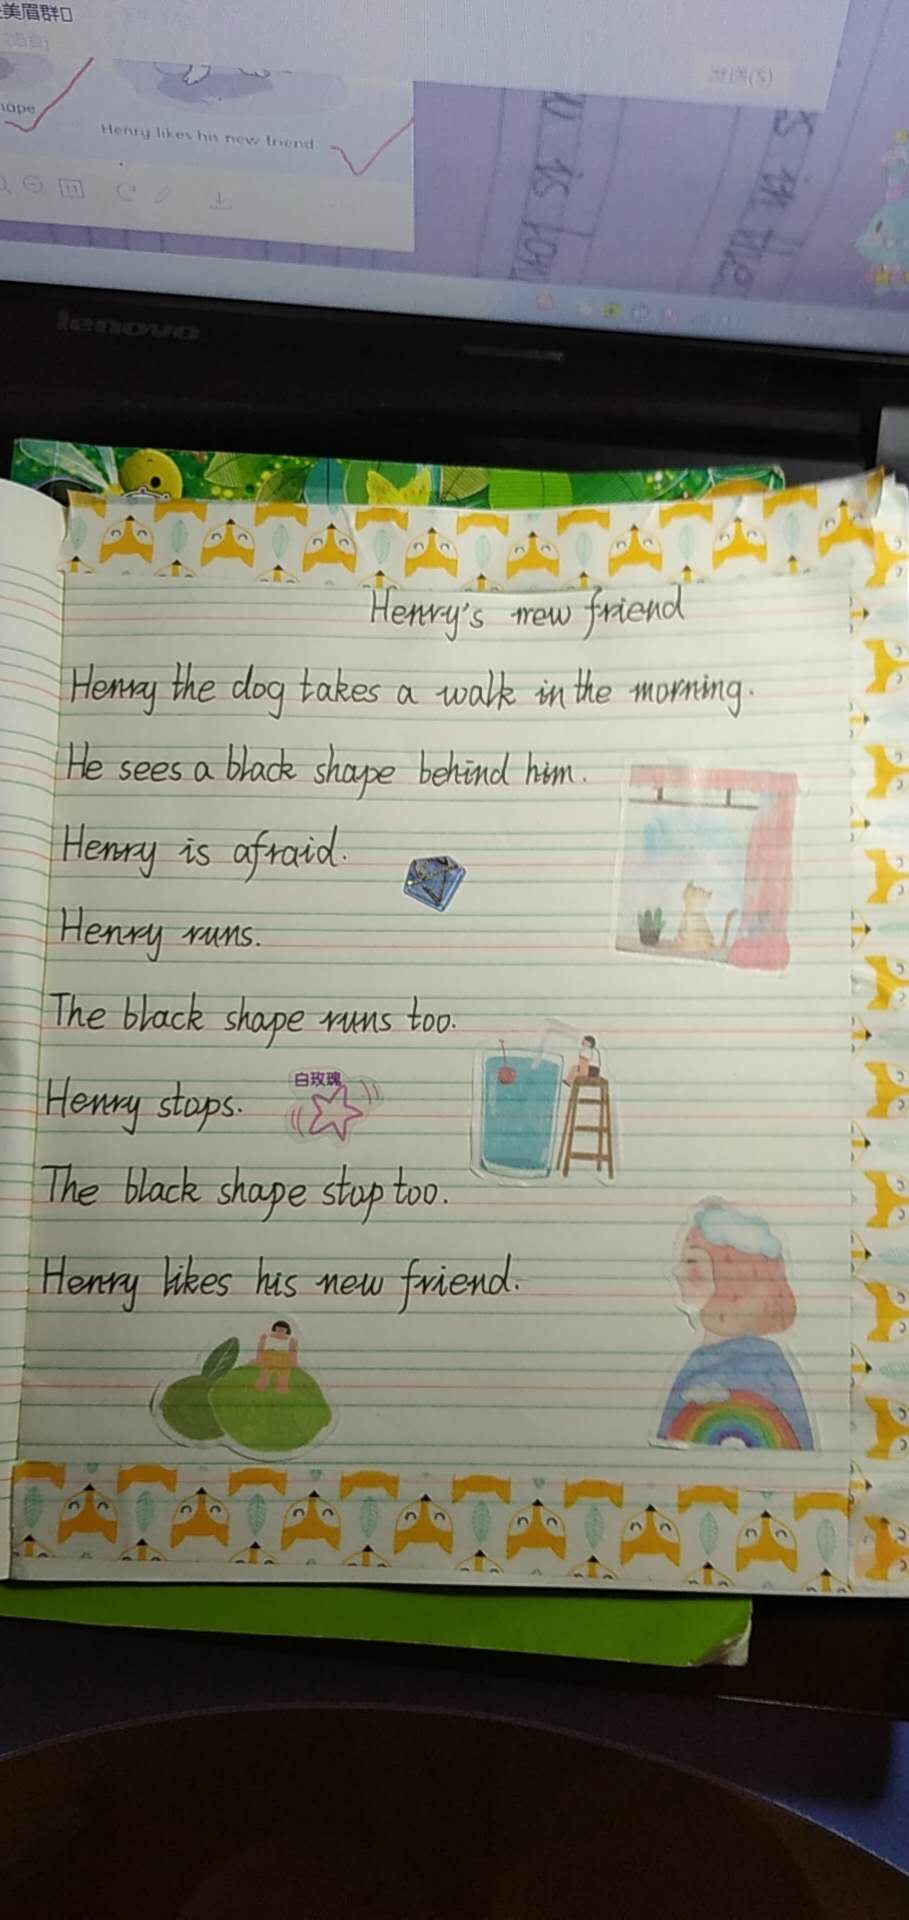 美眉群
Henry likes his new friend
lenovo
Henry's new friend
Henry the dog takes a walk in the morning.
He sees a black shape behind him.
Henry is afraid.
Henry runs.
The black shape runs too.
Henry stops.
白玫瑰
The black shape stop too.
Henry likes his new friend.